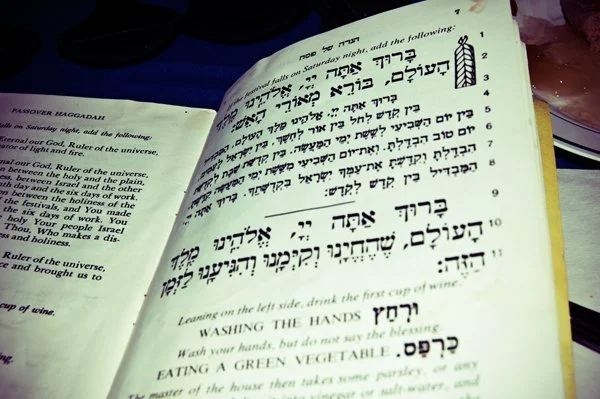 PASSOVER HAGGADAH
falls on Saturday night, add the following:
ernal our God, Ruler of the universe,
eator of light and fire.
ernal our God, Ruler of the universe,
n between the holy and the plain,
ness, between Israel and the other
nth day and the six days of work.
on between the holiness of the
the festivals, and You made
the six days of work. You
holy Your people Israel
Thou, Who makes a dis-
ess and holiness.
Ruler of the universe,
ce and brought us to
cup of wine.
הגדה של פסח
the festival falls on Saturday night, add the following:
בָּרוּךְ אַתָּה יְיָ, אֱלֹהֵינוּ מֶלֶךְ 1
הָעוֹלָם, בּוֹרֵא מְאוֹרֵי הָאֵשׁ: 2
בָּרוּךְ אַתָּה יְיָ, אֱלֹהֵינוּ מֶלֶךְ הָעוֹלָם, הַמַּבְדִּיל 3
בֵּין קֹדֶשׁ לְחֹל בֵּין אוֹר לְחֹשֶׁךְ, בֵּין יִשְׂרָאֵל לָעַמִּים, 4
בֵּין יוֹם הַשְּׁבִיעִי לְשֵׁשֶׁת יְמֵי הַמַּעֲשֶׂה. בֵּין קְדֻשַּׁת שַׁבָּת לִקְדֻשַּׁת 5
יוֹם טוֹב הִבְדַּלְתָּ. וְאֶת־יוֹם הַשְּׁבִיעִי מִשֵּׁשֶׁת יְמֵי הַמַּעֲשֶׂה קִדַּשְׁתָּ. 6
הִבְדַּלְתָּ וְקִדַּשְׁתָּ אֶת־עַמְּךָ יִשְׂרָאֵל בִּקְדֻשָּׁתֶךָ. בָּרוּךְ אַתָּה יְיָ, 7
הַמַּבְדִּיל בֵּין קֹדֶשׁ לְקֹדֶשׁ: 8
בָּרוּךְ אַתָּה יְיָ, אֱלֹהֵינוּ מֶלֶךְ 9
הָעוֹלָם, שֶׁהֶחֱיָנוּ וְקִיְּמָנוּ וְהִגִּיעָנוּ לַזְּמַן 10
הַזֶּה: 11
Leaning on the left side, drink the first cup of wine.
WASHING THE HANDS וּרְחַץ
Wash your hands, but do not say the blessing.
EATING A GREEN VEGETABLE כַּרְפַּס.
The master of the house then takes some parsley, or any
into vinegar or salt-water, and